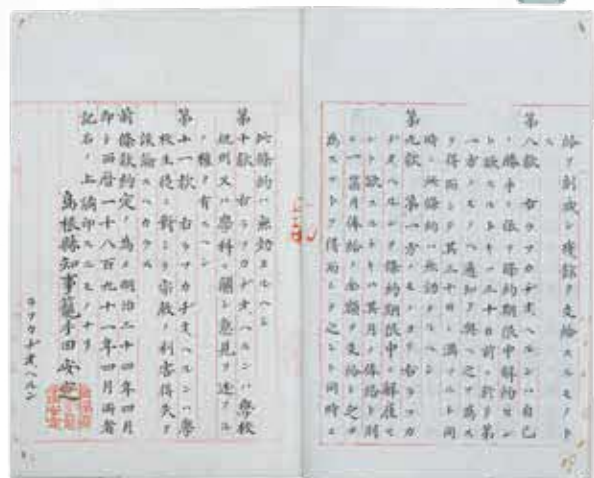 給ヲ割減シ残餘ヲ支給スルモノト
ス
第八款 右ラフカヂオヘルンハ自己
ノ勝手ニ依テ條約期限中解約セン
ト欲スルトキハ三十日前ニ於テ第
一方ノモノヘ通知ヲ與ヘ之ヲ為ス
ヲ得而シテ其三十日ニ満ツルト同
時ニ此條約ハ無効タルヘシ
第九款 第一方ノモノヨリ右ラフカ
ヂオヘルンヲ條約期限中ニ解雇セ
ント欲スルトキハ其月ノ俸給ト別
ニ一箇月俸給ノ金額ヲ支給シ之ヲ
為スコトヲ得而シテ之レト同時ニ
此條約ハ無効タルヘシ
第十款 右ラフカヂオヘルンハ學校
規則又ハ學科ニ關シ意見ヲ述フル
ノ權ヲ有スヘシ
第十一款 右ラフカヂオヘルンハ學
校生徒ニ對シテ宗教ノ利害得失ヲ
談論スヘカラス
前條款約定ノ為メ明治二十四年四月
即チ西暦一千八百九十一年四月両者
記名ノ上鈐印スルモノナリ
島根縣知事籠手田安定
ラフカヂオヘルン